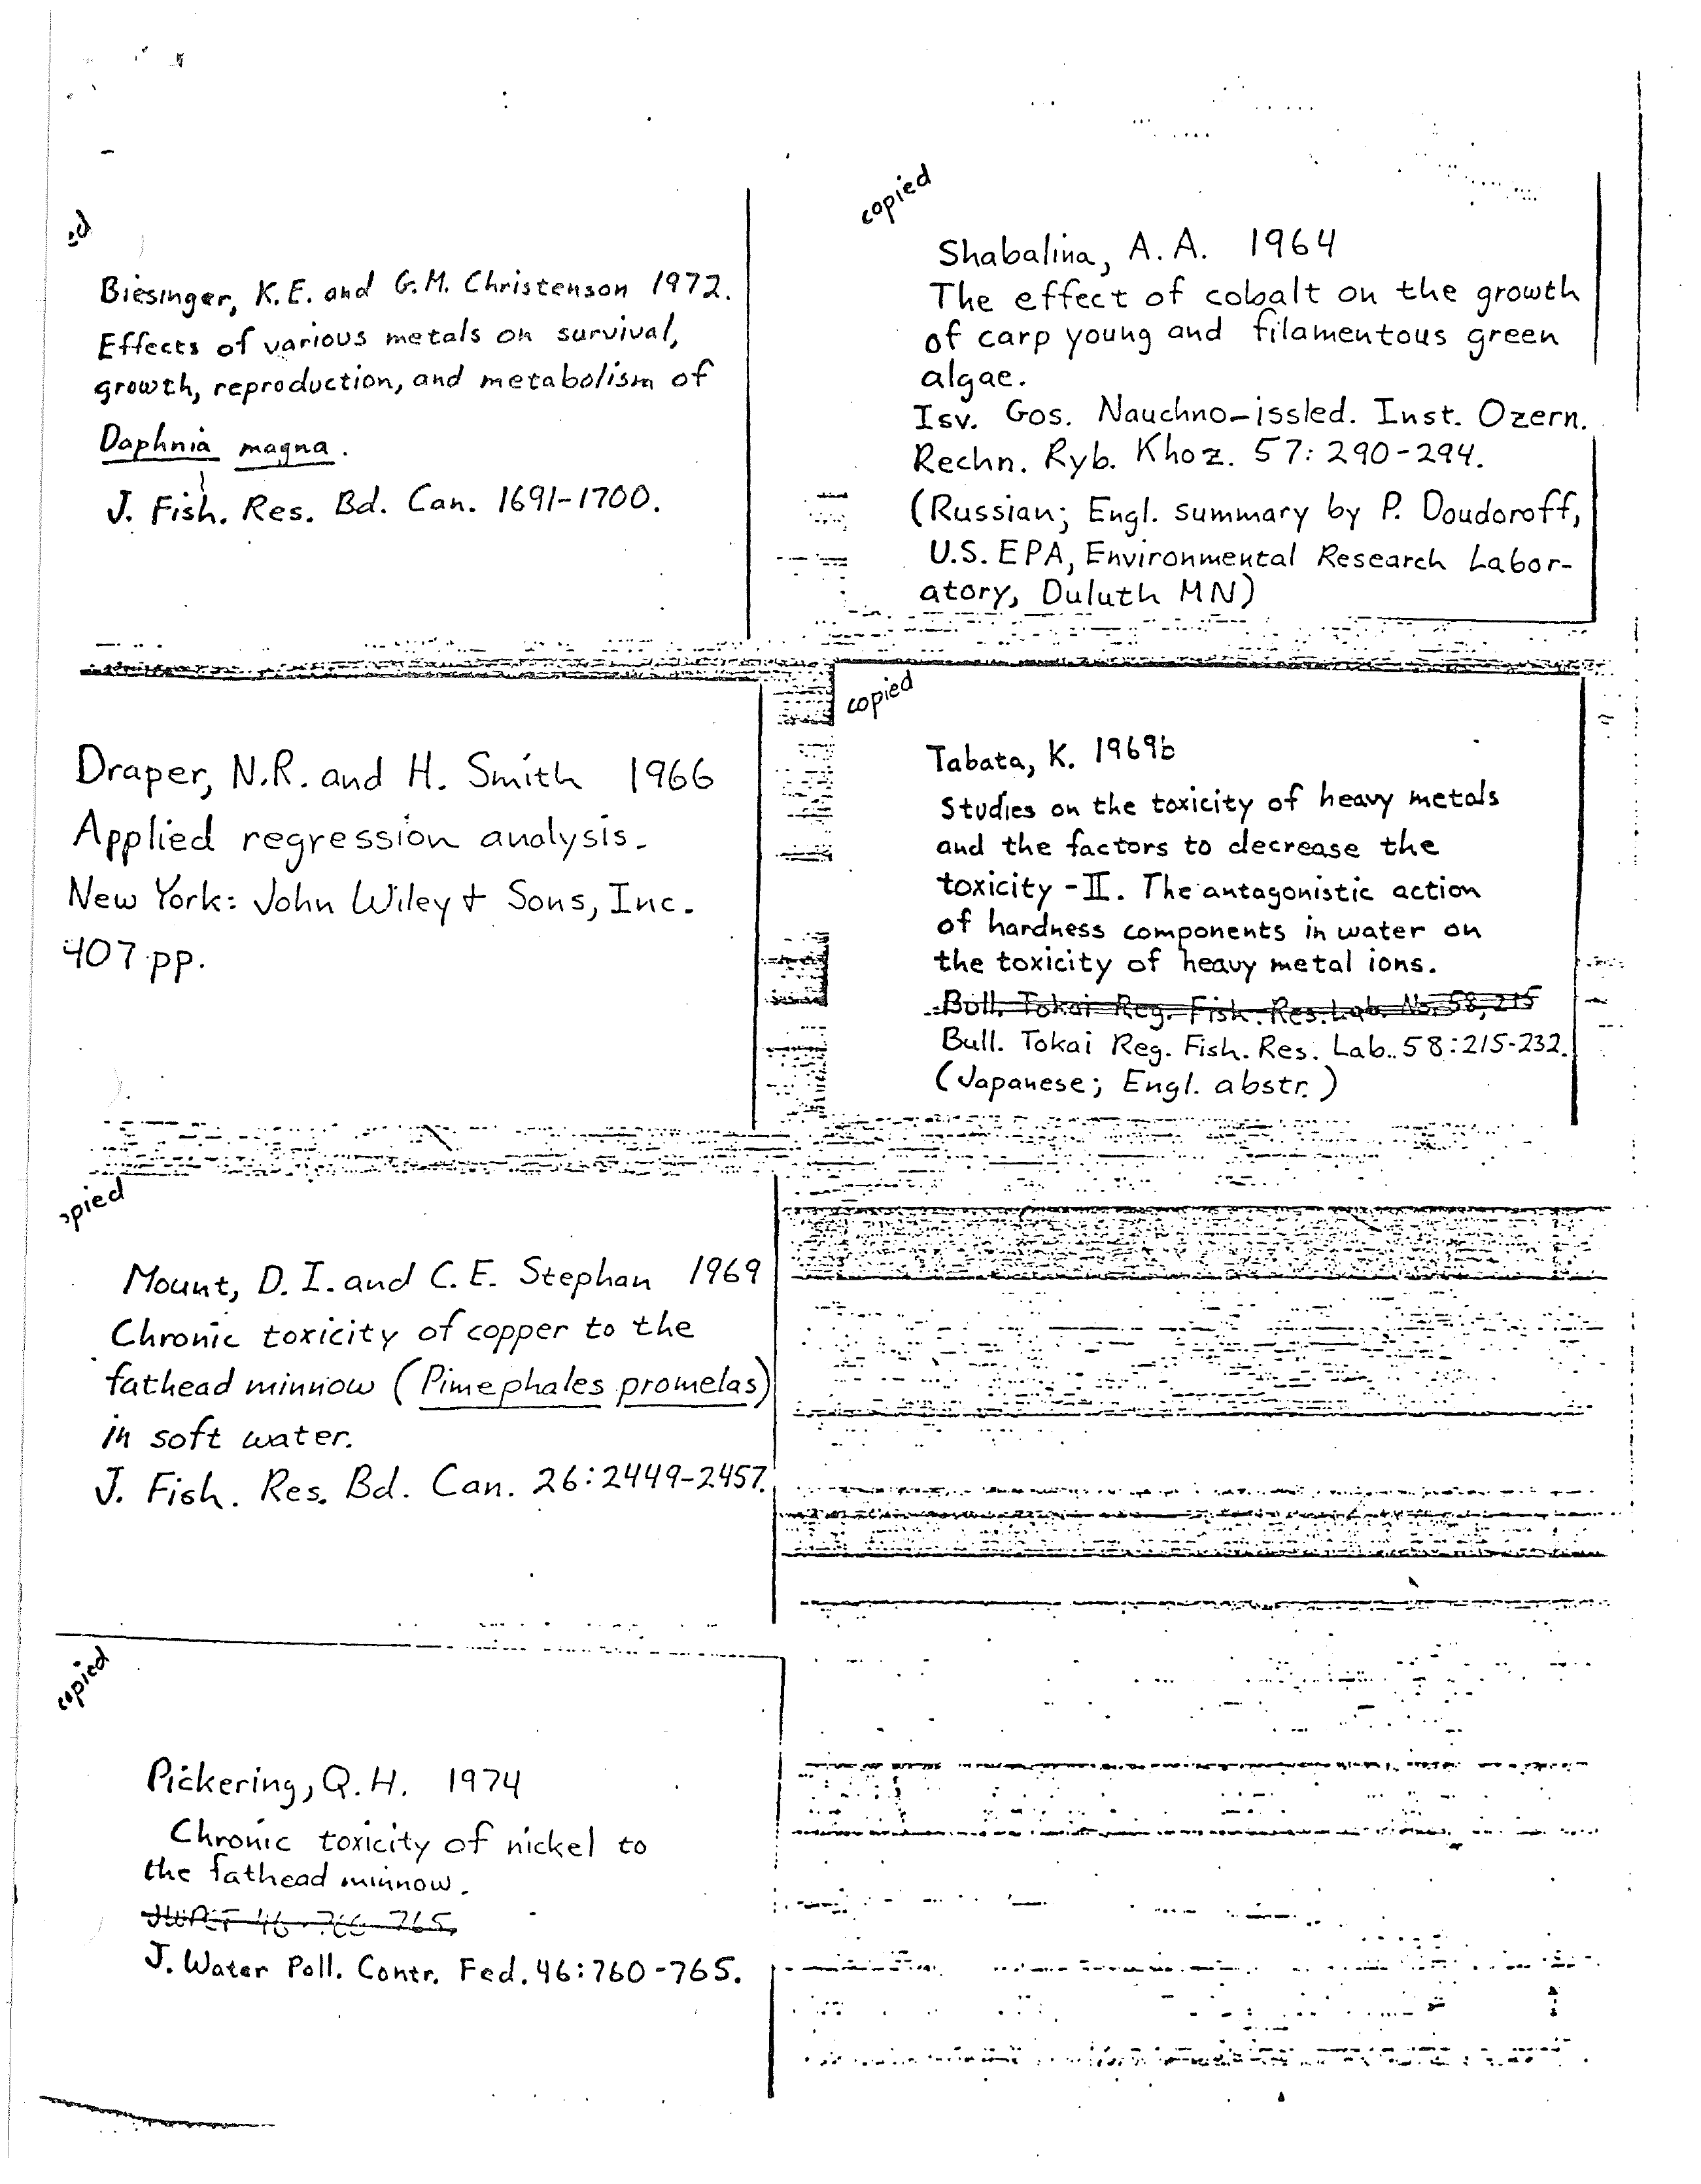 Biesinger, K.E. and G.M. Christenson 1972.
Effects of various metals on survival,
growth, reproduction, and metabolism of
Daphnia magna.
J. Fish. Res. Bd. Can. 1691-1700.
copied
Shabalina, A. A. 1964
The effect of cobalt on the growth
of carp young and filamentous green
algae.
Isv. Gos. Nauchno-issled. Inst. Ozern.
Rechn. Ryb. Khoz. 57: 290-294.
(Russian; Engl. summary by P. Doudoroff,
U.S. EPA, Environmental Research Labor-
atory, Duluth MN)
Draper, N.R. and H. Smith 1966
Applied regression analysis.
New York: John Wiley + Sons, Inc.
407 pp.
copied
Tabata, K. 1969b
Studies on the toxicity of heavy metals
and the factors to decrease the
toxicity - II. The antagonistic action
of hardness components in water on
the toxicity of heavy metal ions.
Bull. Tokai Reg. Fish. Res. Lab. No. 58, 215
Bull. Tokai Reg. Fish. Res. Lab. 58:215-232.
(Japanese; Engl. abstr.)
opied
Mount, D. I. and C. E. Stephan 1969
Chronic toxicity of copper to the
fathead minnow (Pimephales promelas)
in soft water.
J. Fish. Res. Bd. Can. 26:2449-2457.
copied
Pickering, Q. H. 1974
Chronic toxicity of nickel to
the fathead minnow.
J. Water Poll. Contr. Fed. 46:760-765.